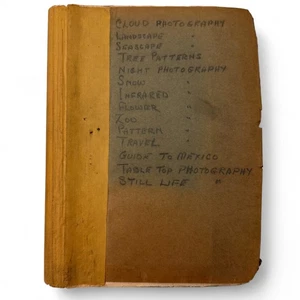 CLOUD PHOTOGRAPHY
LANDSCAPE "
SEASCAPE "
TREE PATTERNS
NIGHT PHOTOGRAPHY
SNOW "
INFRARED "
FLOWER "
ZOO "
PATTERN "
TRAVEL "
GUIDE TO MEXICO
TABLE TOP PHOTOGRAPHY
STILL LIFE "